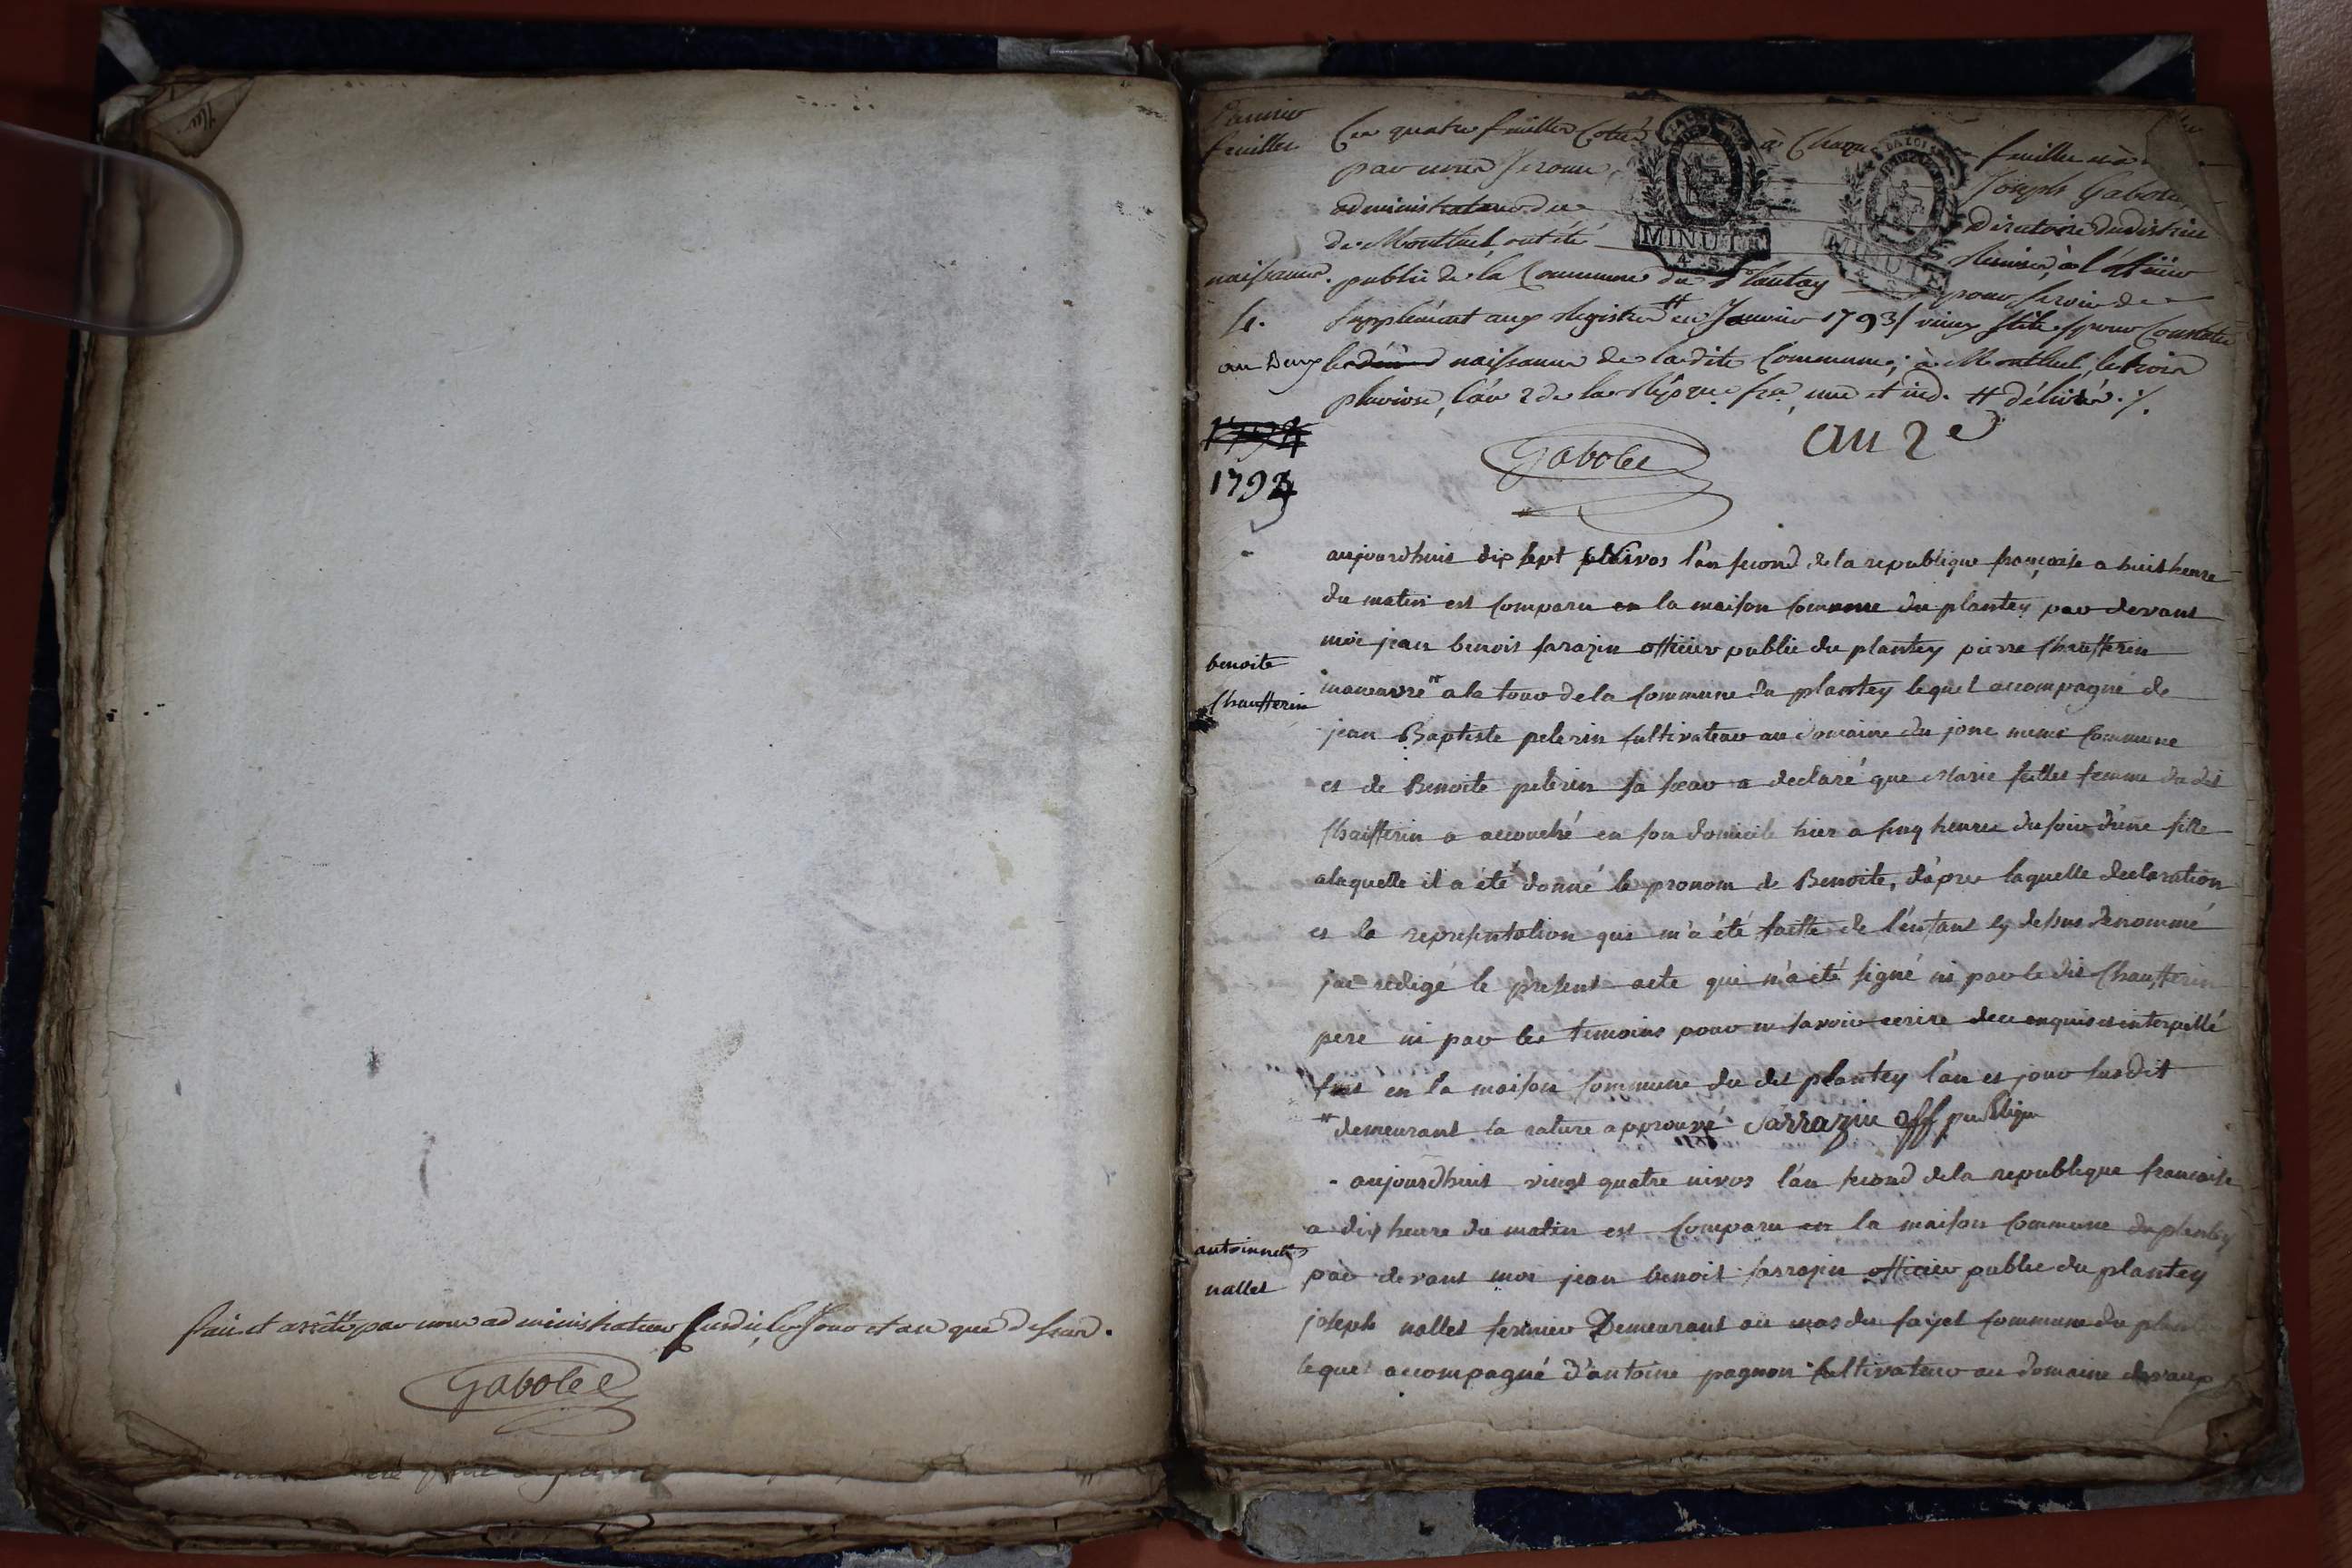 fait et arrêté par nous administrateur susdit, les jour et an que dessus.
Gabolee
Premier
feuillet
Ces quatre feuillets cotés à chaque feuillet
par nous Jerome Joseph Gabolee
administrateur du Directoire du District
de Montluel, ont été Remis à l'officier
naissance. public de la Commune du Plantay pour servir de
supplément aux Registres # en Janvier 1793 / vieux stile / pour constater
an Deux les naissances de ladite Commune; à Montluel, le trois
pluviose, l'an 2 de la Répque. fse, une et ind. # délivrés ./.
1794
1794
Gabolee
an 2e
MINUTE
4 S
MINUTE
benoite
Chaufferin
aujourdhuis dix sept nivos l'an second de la republique françoise a huit heure
du matin est comparu en la maison commune du plantey par devant
moi jean benois sarazin officier public du plantey pierre Chaufferin
maneuvre # a la tour de la commune du plantey lequel accompagné de
jean Baptiste pelerin cultivateur au domaine du jonc meme commune
et de Benoite pelerin sa sœur a declaré que Marie femme du dit
Chaufferin a accouché en son domicile hier a sinq heures du soir d'une fille
a laquelle il a été donné le pronom de Benoite, d'apres laquelle declaration
et la representation qui m'a été faitte de l'enfant cy desus denommé
jai redigé le present acte qui n'a été signé ni par le dit Chaufferin
pere ni par les temoins pour ne savoir ecrire de ce enquis et interpellé
fait en la maison commune du dit plantey l'an et jour susdit
# demeurant la rature approuvé Sarrazin off publique
antoinette
nallet
aujourdhuit vingt quatre nivos l'an second de la republique francoise
a dix heure du matin est comparu en la maison commune du plantey
par devant moi jean benoit sarrazin officier public du plantey
joseph nallet fermier Demeurant au mas du fayet commune du
lequel accompagné d'antoine pagnon cultivateur au domaine